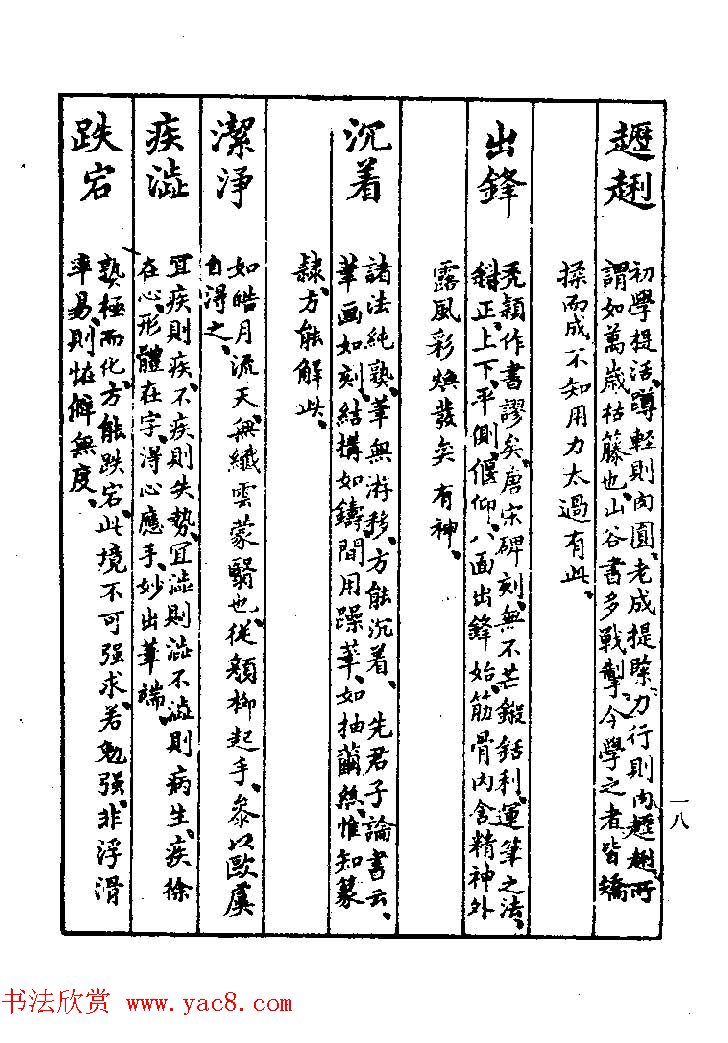 趱趔
初學提活蹲輕則肉圓、老成提䠞力行則肉趱趔所
謂如萬歲枯藤也、山谷書多戰掣、今學之者皆矯
揉而成不知用力太過有此、
出鋒
禿穎作書謬矣、唐宋碑刻、無不芒鎩銛利、運筆之法、
斜正、上下、平側、偃仰、八面出鋒始、筋骨内含精神外
露風彩煥發矣 有神、
沉着
諸法純熟、筆無游移、方能沉着、先君子論書云、
筆画如刻、結構如鑄間用躁筆、如抽繭絲、惟知篆
隸、方能解此、
潔淨
如皓月流天、無纖雲蒙翳也、從顏柳起手、叅以歐虞
自得之、
疾澁
宜疾則疾、不疾則失勢、宜澁則澁不澁則病生、疾徐
在心、形體在字、得心應手、妙出筆端、
跌宕
熟極而化、方能跌宕、此境不可强求、若勉强、非浮滑
率易、則怪僻無度、
一八
书法欣赏 www.yac8.com